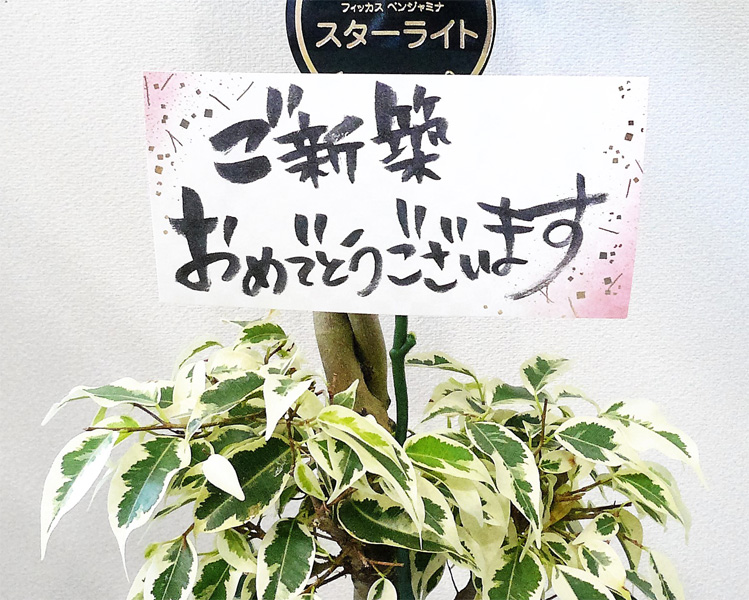 フィッカス ベンジャミナ
スターライト
ご新築
おめでとうございます